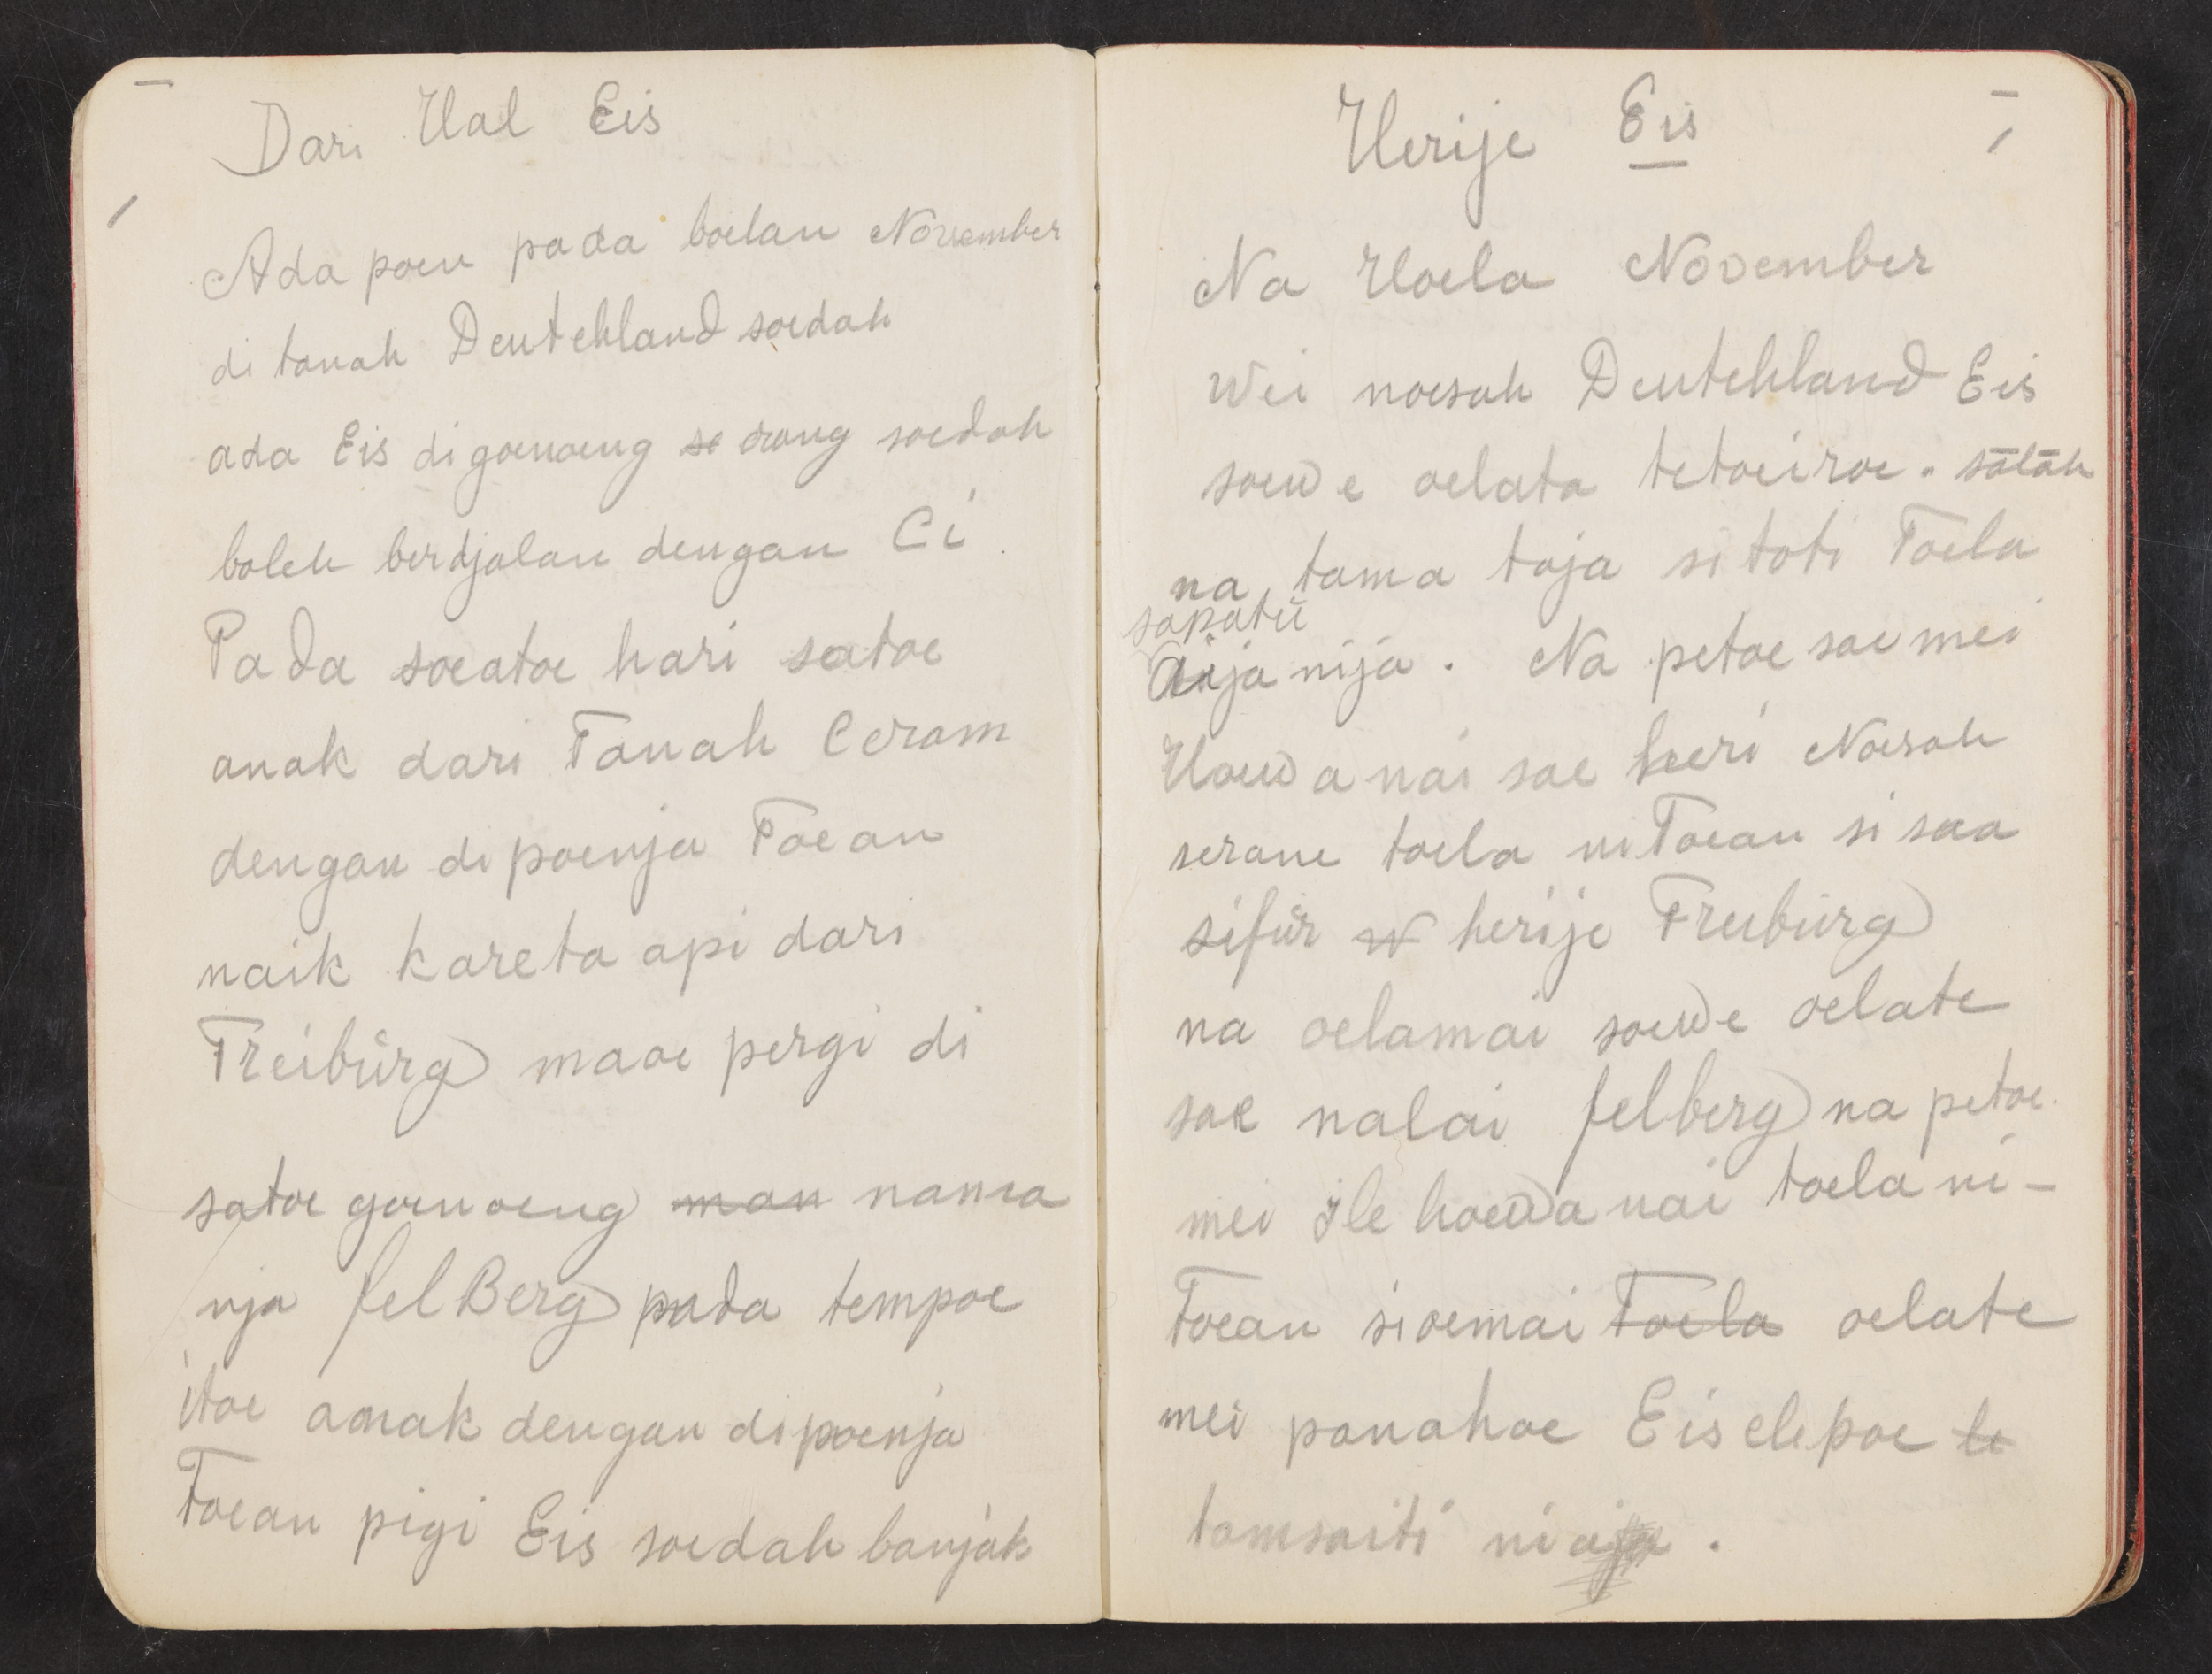 Dari Hal Eis
Ada poen pada boelan November
di tanah Deutchland soedah
ada Eis di goenoeng se orang soedah
boleh berdjalan dengan Ci.
Pada soeatoe hari satoe
anak dari Tanah Ceram
dengan di poenja Toean
naik kareta api dari
Freibûrg maoe pergi di
satoe goenoeng man nama
nja felBerg pada tempoe
itoe anak dengan di poenja
Toean pigi Eis soedah banjak
Herije Eis
Na Hoela November
Wei noesah Deutchland Eis
soewe oelata tetoeiroe. sālāh
na tama taja si toti Toela
sapatü
aija nija. Na petoe soe mei
Howa nai sae heri Noesah
serane toela ni Toean si saa
sifûr w herije Freibûrg
na oelamai soewe oelate
sae nalai felberg na petoe
mei ile hoewa nai toela ni-
Toean si oemai Toela oelate
mei panahoe Eis elepoe le
tamsaiti ni